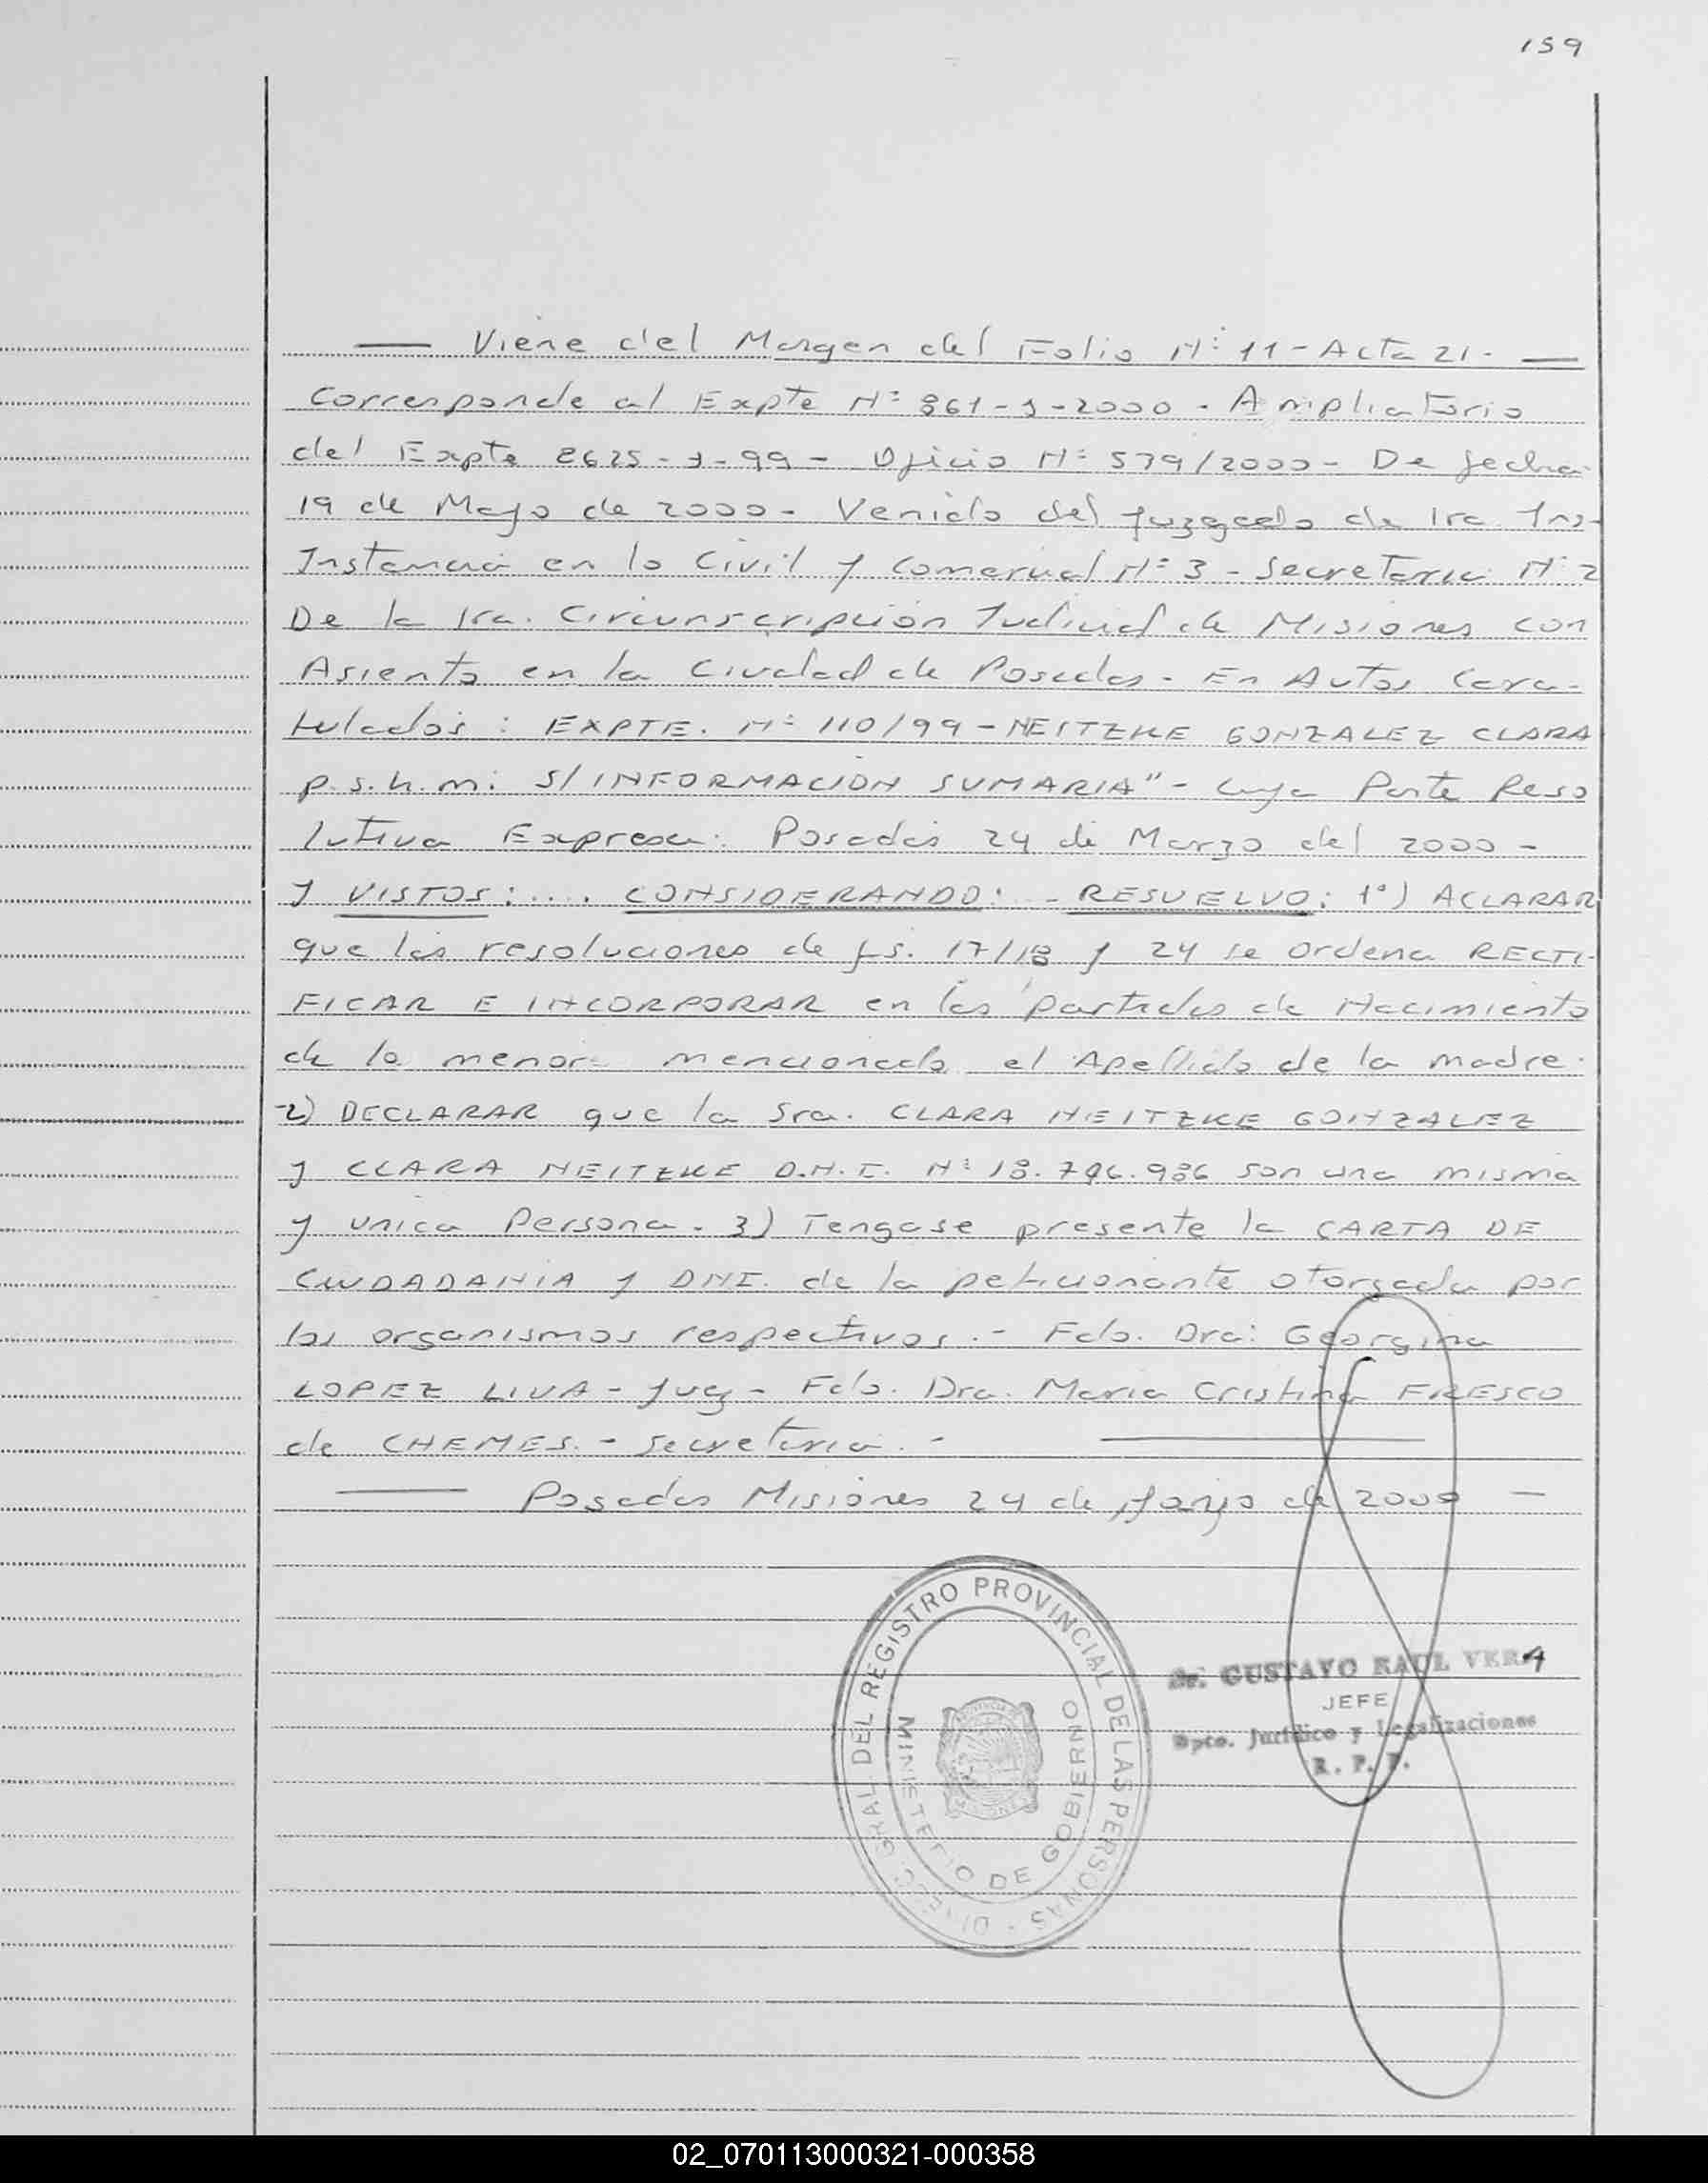 159
— Viene del Margen del Folio Nº 11 - Acta 21. —
Corresponde al Expte Nº 861-J-2000 - Ampliatorio
del Expte 8625-J-99 - Oficio Nº 579/2000 - De fecha
19 de Mayo de 2000 - Venido del Juzgado de 1ra. Ins-
Instancia en lo Civil y Comercial Nº 3 - Secretaria Nº 2
De la 1ra. Circunscripción Judicial de Misiones con
Asiento en la Ciudad de Posadas - En Autos Cara-
tulados: EXPTE. Nº 110/99 - NEITZKE GONZALEZ CLARA
p.s.h.m: S/INFORMACION SUMARIA" - Cuya Parte Reso
lutiva Expresa: Posadas 24 de Marzo del 2000 -
Y VISTOS: .... CONSIDERANDO: .. - RESUELVO: 1º) ACLARAR
que las resoluciones de fs. 17/18 y 24 se ordena RECTI-
FICAR E INCORPORAR en las partidas de Nacimiento
de la menor mencionada el Apellido de la madre.
2) DECLARAR que la Sra. CLARA NEITZKE GONZALEZ
y CLARA NEITZKE D.N.I. Nº son una misma
y unica Persona. 3) Tengase presente la CARTA DE
CIUDADANIA y DNI. de la peticionante otorgada por
los organismos respectivos. - Fdo. Dra: Georgina
LOPEZ LIVA - Juez - Fdo. Dra. Maria Cristina FRESCO
de CHEMES. - Secretaria. -
— Posadas Misiones 24 de de 2000 —
DIRECC. GRAL. DEL REGISTRO PROVINCIAL DE LAS PERSONAS -
MINISTERIO DE GOBIERNO
Dr. GUSTAVO RAUL VERA
JEFE
Dpto. Jurídico y Legalizaciones
R. P. P.
02_070113000321-000358